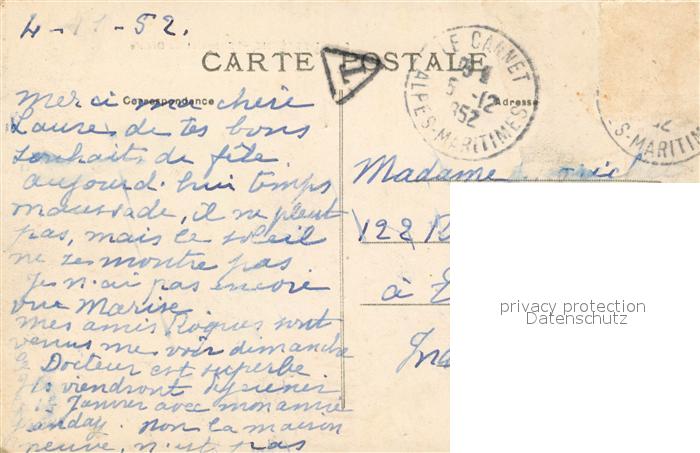 4-11-52.
CARTE POSTALE
Correspondence
Adresse
T
LE CANNET
5-12
952
ALPES-MARITIMES
ES-MARITIM
Merci ma chère
Laure de tes bons
souhaits de fête
aujourd'hui temps
maussade, il ne pleut
pas, mais le soleil
ne se montre pas.
Je n'ai pas encore
vue Marise
mes amis Roques sont
venus me voir dimanche
le Docteur est superbe
Ils viendront déjeuner
Janvier avec mon amie
non la maison
neuve, n'est pas
Madame
122
à
privacy protection
Datenschutz